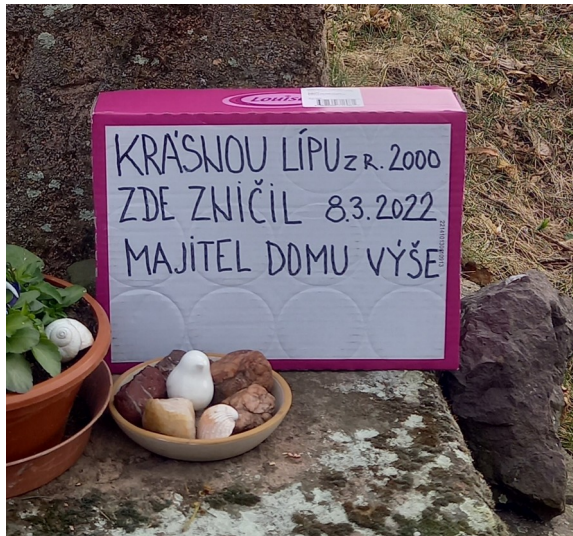 Louis
KRÁSNOU LÍPU Z R. 2000
ZDE ZNIČIL 8.3.2022
MAJITEL DOMU VÝŠE